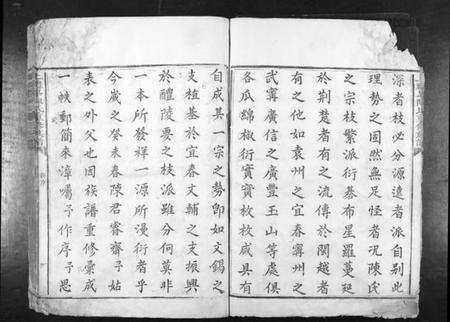 深者枝必分源遠者派自别此
理勢之固然無足怪者况陳氏
之宗枝繁派衍碁布星羅蔓延
於荆楚者有之流傳於閩越者
有之他如袁州之宜春寧州之
武寧廣信之廣豐玉山等處俱
各瓜綿椒衍實實枚枚咸具有
自成其一宗之勢即如文錫之
支植基於宜春文輔之支振興
於醴陵要之枝派雖分何莫非
一本所發祥一源所漫衍者乎
今歲之癸未春陳君睿齋予姑
表之外父也因族譜重修彙成
一帙郵簡來漳囑予作序予思